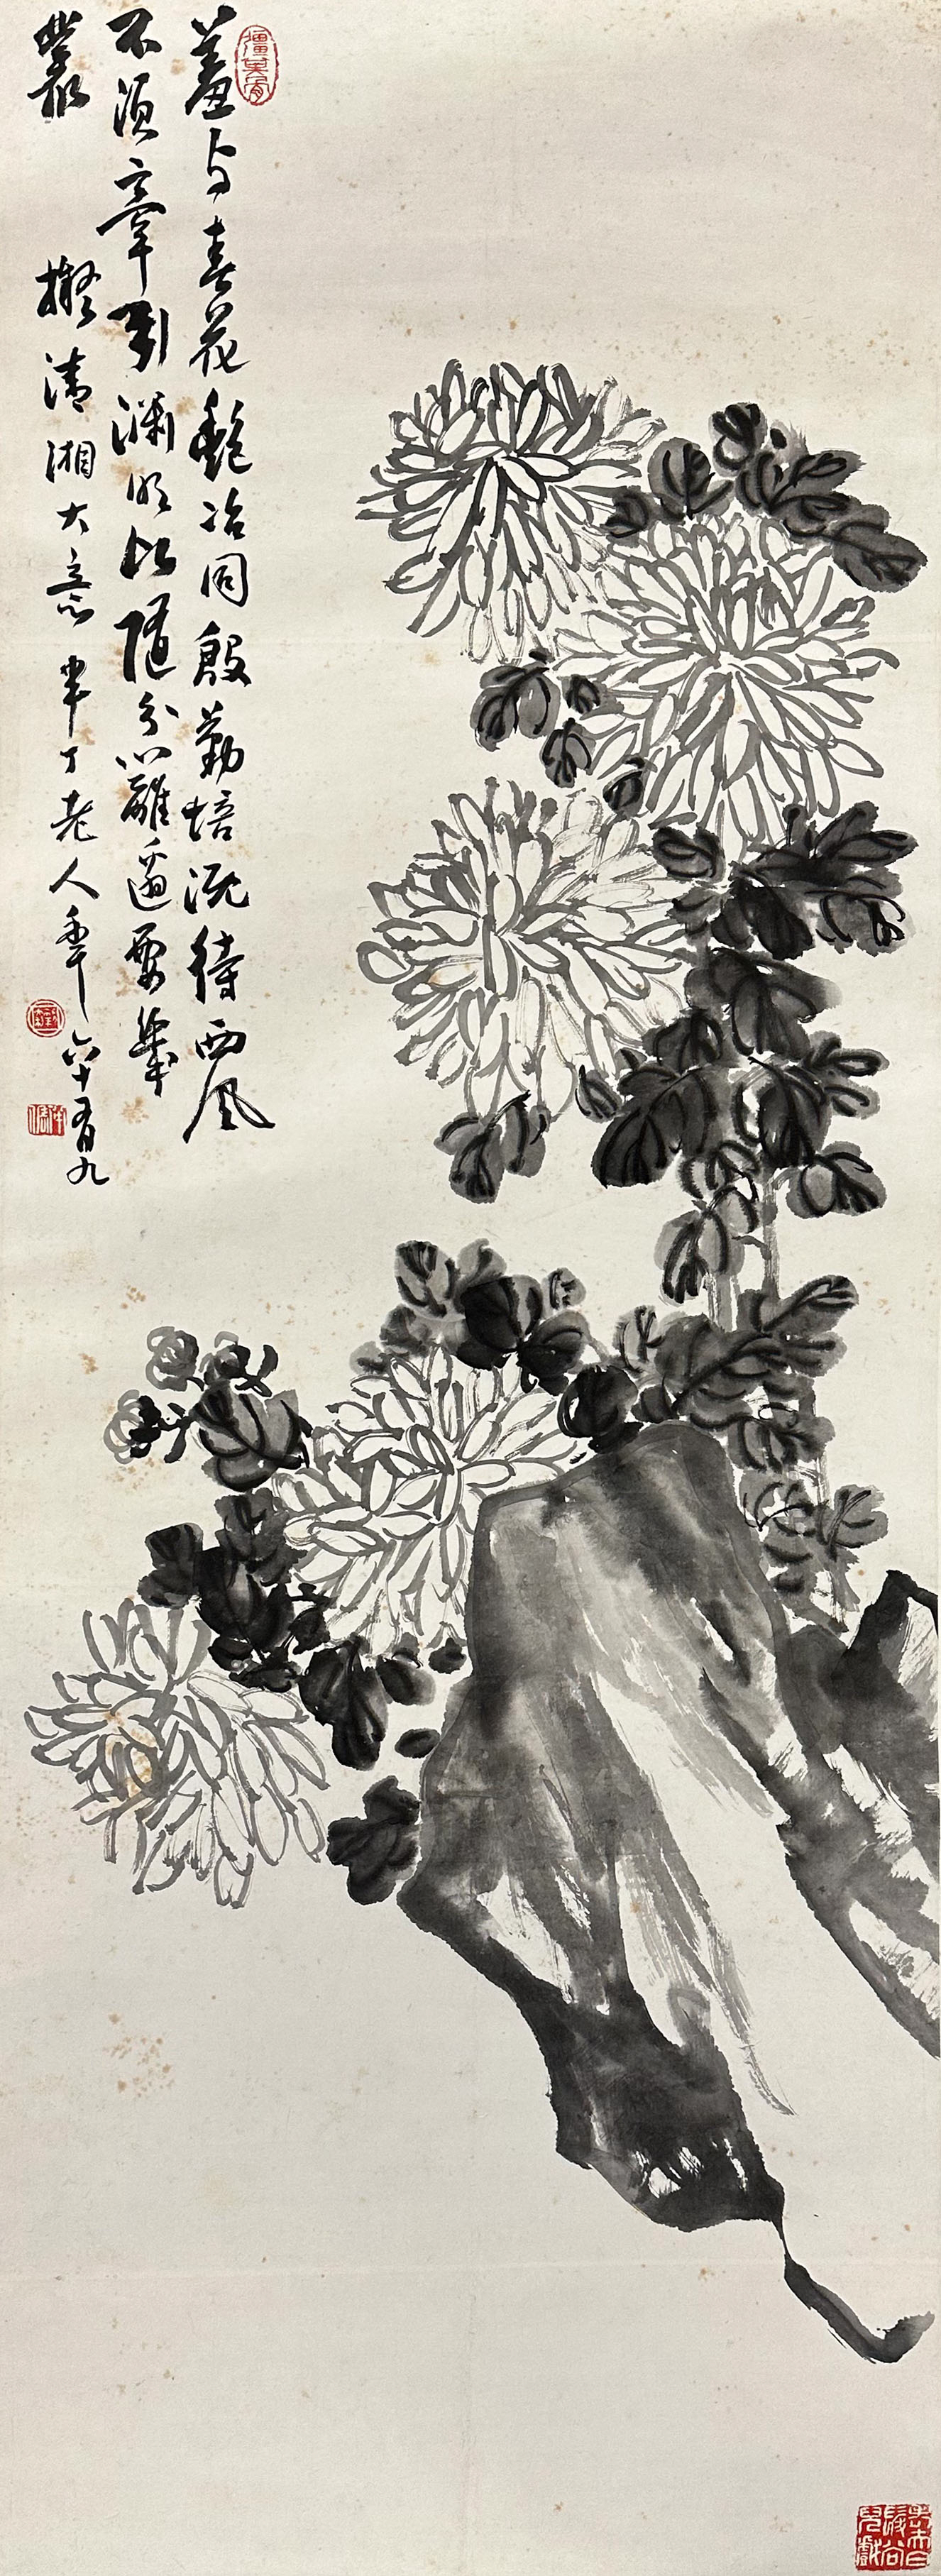 羞与春花艳冶同殷勤培溉待西风
不须牵引渊明比随分篱边要几
丛
拟清湘大意半丁老人年六十有九